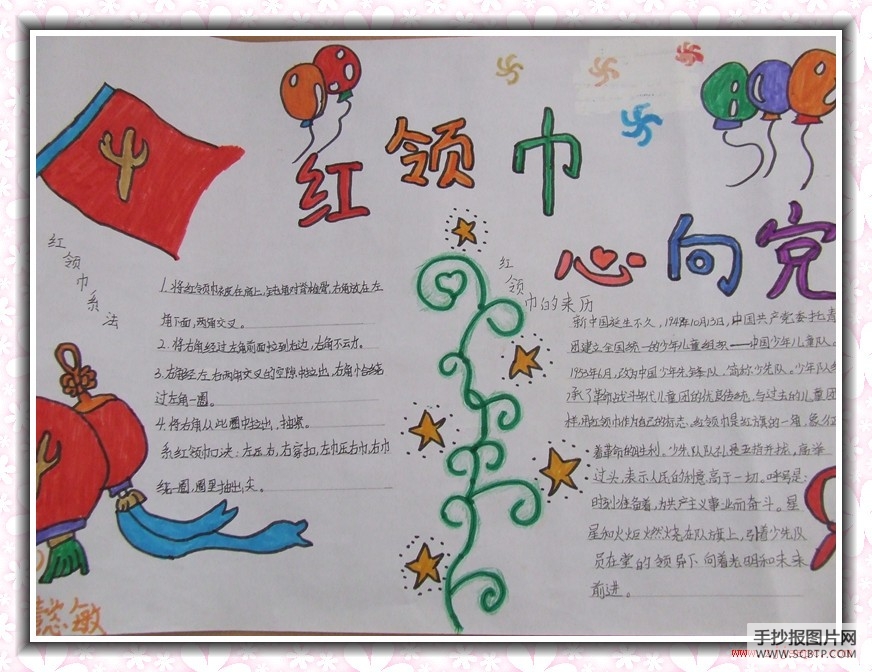 红领巾
心向党
红领巾系法
1.将红领巾披在肩上,钝角对脊椎骨,右角放在左
角下面,两角交叉。
2.将右角经过左角前面拉到右边,左角不动。
3.右角经左右两角交叉的空隙中拉出,右角恰绕
过左角一圈。
4.将右角从此圈中拉出,抽紧。
系红领巾口决:左压右,右穿扣,左巾压右巾,右巾
绕一圈,圈里抽出尖。
红领巾的来历
新中国诞生不久,1949年10月13日,中国共产党委托青
团建立全国统一的少年儿童组织——中国少年儿童队。
1953年6月,改为中国少年先锋队,简称少先队。少年队继
承了革命战斗时代儿童团的优良传统,与过去的儿童团
样用红领巾作为自己的标志,红领巾是红旗的一角,象征
着革命的胜利。少先队队礼是五指并拢,高举
过头,表示人民的利意高于一切。呼号是:
时刻准备着,为共产主义事业而奋斗。星
星和火炬燃烧在队旗上,引着少先队
员在党的领导下向着光明和未来
前进。
懿敏
手抄报图片网
WWW.SCBTP.COM